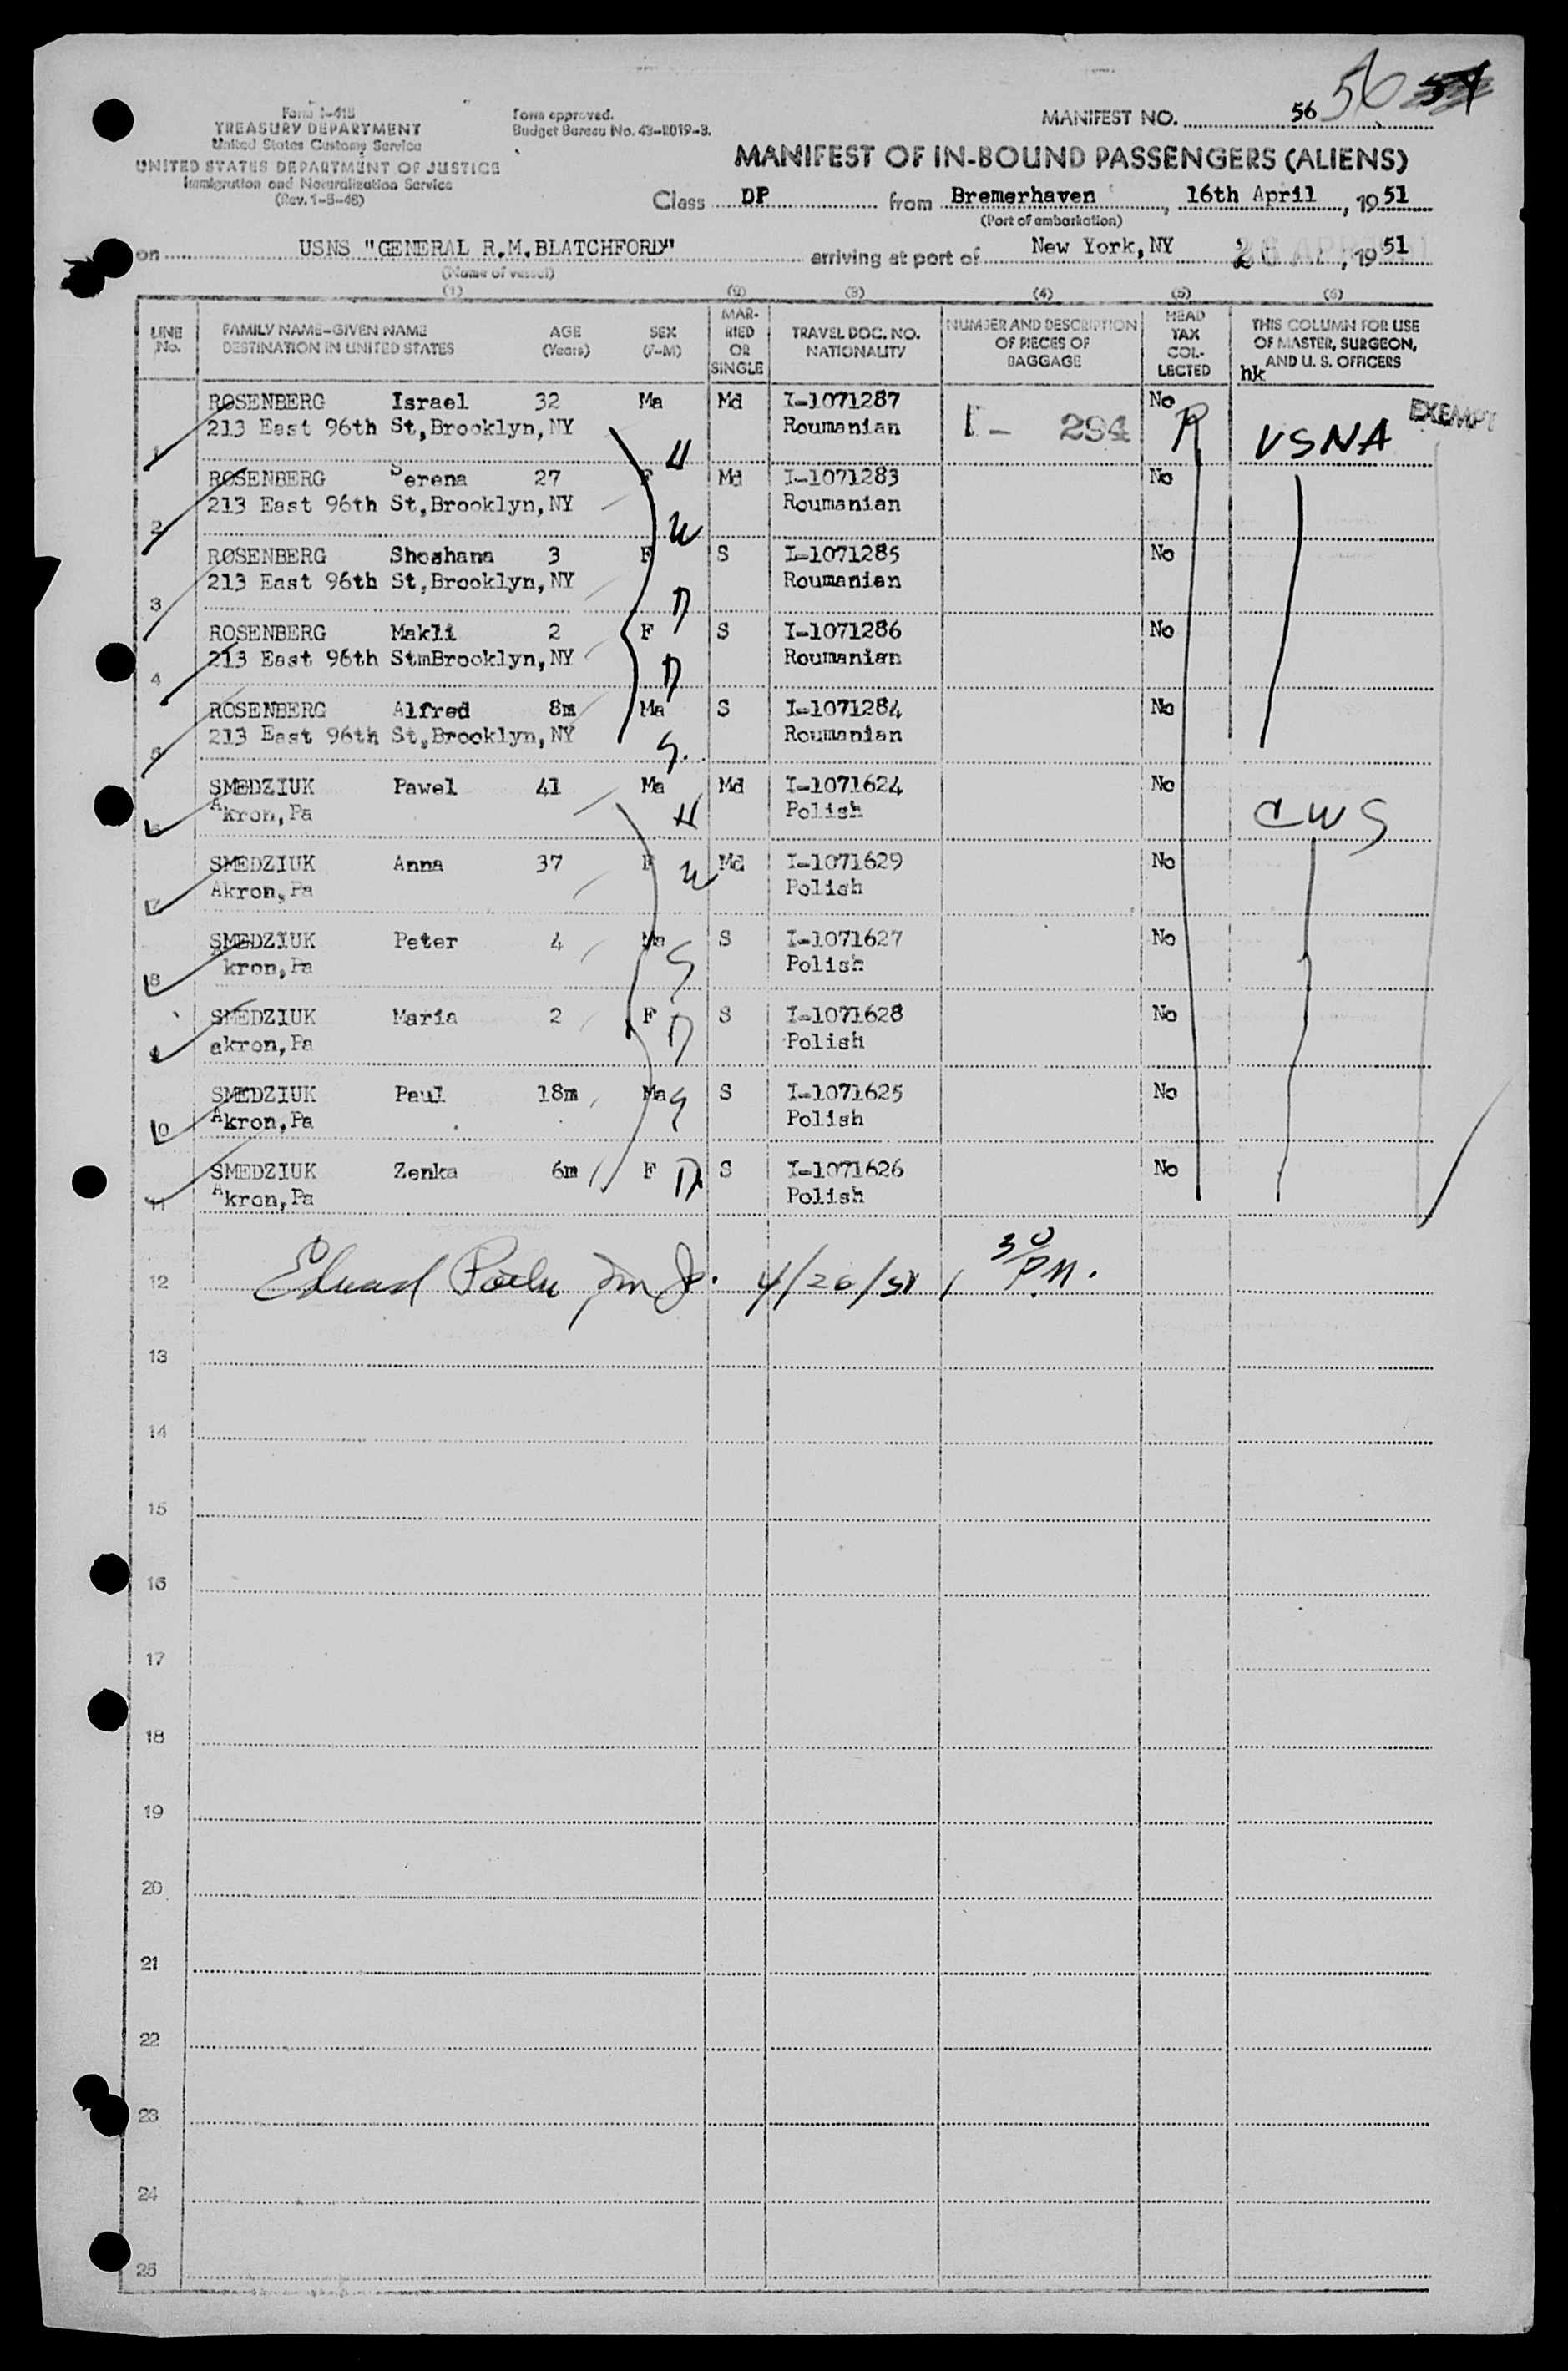 Form I-415
TREASURY DEPARTMENT
United States Customs Service
UNITED STATES DEPARTMENT OF JUSTICE
Immigration and Naturalization Service
(Rev. 1-5-48)
Form approved.
Budget Bureau No. 43-R019-3.
MANIFEST NO. 56 56
MANIFEST OF IN-BOUND PASSENGERS (ALIENS)
Class DP from Bremerhaven, 16th April, 1951
(Port of embarkation)
on USNS "GENERAL R.M.BLATCHFORD" arriving at port of New York,NY 26 APR, 1951
(Name of vessel)
(1) (2) (3) (4) (5) (6)
LINE No. FAMILY NAME-GIVEN NAME DESTINATION IN UNITED STATES AGE (Years) SEX (F-M) MARRIED OR SINGLE TRAVEL DOC. NO. NATIONALITY NUMBER AND DESCRIPTION OF PIECES OF BAGGAGE HEAD TAX COLLECTED THIS COLUMN FOR USE OF MASTER, SURGEON, AND U. S. OFFICERS
hk
ROSENBERG Israel 32 Ma Md I-1071287 No EXEMPT
1 213 East 96th St,Brooklyn,NY H Roumanian I- 294 R USNA
ROSENBERG Serena 27 F Md I-1071283 No
2 213 East 96th St,Brooklyn,NY W Roumanian
ROSENBERG Shoshana 3 F S I-1071285 No
3 213 East 96th St,Brooklyn,NY D Roumanian
ROSENBERG Makli 2 F S I-1071286 No
4 213 East 96th StmBrooklyn,NY D Roumanian
ROSENBERG Alfred 8m Ma S I-1071284 No
5 213 East 96th St,Brooklyn,NY S. Roumanian
SMEDZIUK Pawel 41 Ma Md I-1071624 No
6 Akron,Pa H Polish CWS
SMEDZIUK Anna 37 F W Md I-1071629 No
7 Akron,Pa Polish
SMEDZIUK Peter 4 Ma S I-1071627 No
8 Akron,Pa S Polish
SMEDZIUK Maria 2 F S I-1071628 No
9 akron,Pa D Polish
SMEDZIUK Paul 18m Ma S S I-1071625 No
10 Akron,Pa Polish
SMEDZIUK Zenka 6m F D S I-1071626 No
11 Akron,Pa Polish
12 4/26/51 1 30 PM.
13
14
15
16
17
18
19
20
21
22
23
24
25